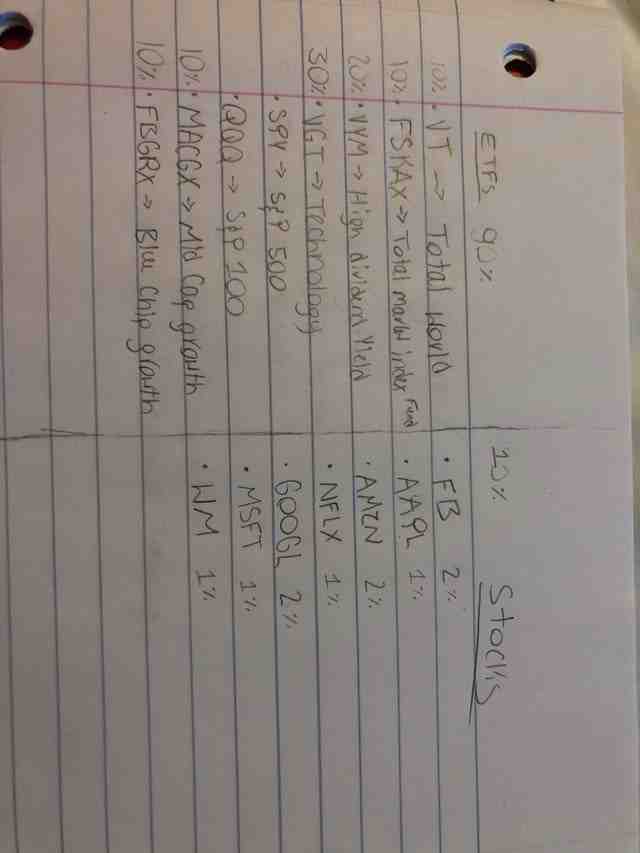 ETFS 90%
10% • VT → Total World
10% • FSKAX → Total market index Fund
20% • VYM → High dividend Yield
30% • VGT → Technology
• SPY → S&P 500
• QQQ → S&P 100
10% • MACGX → Mid Cap growth
10% • FBGRX → Blue Chip growth
10% Stocks
• FB 2%
• AAPL 1%
• AMZN 2%
• NFLX 1%
• GOOGL 2%
• MSFT 1%
• WM 1%